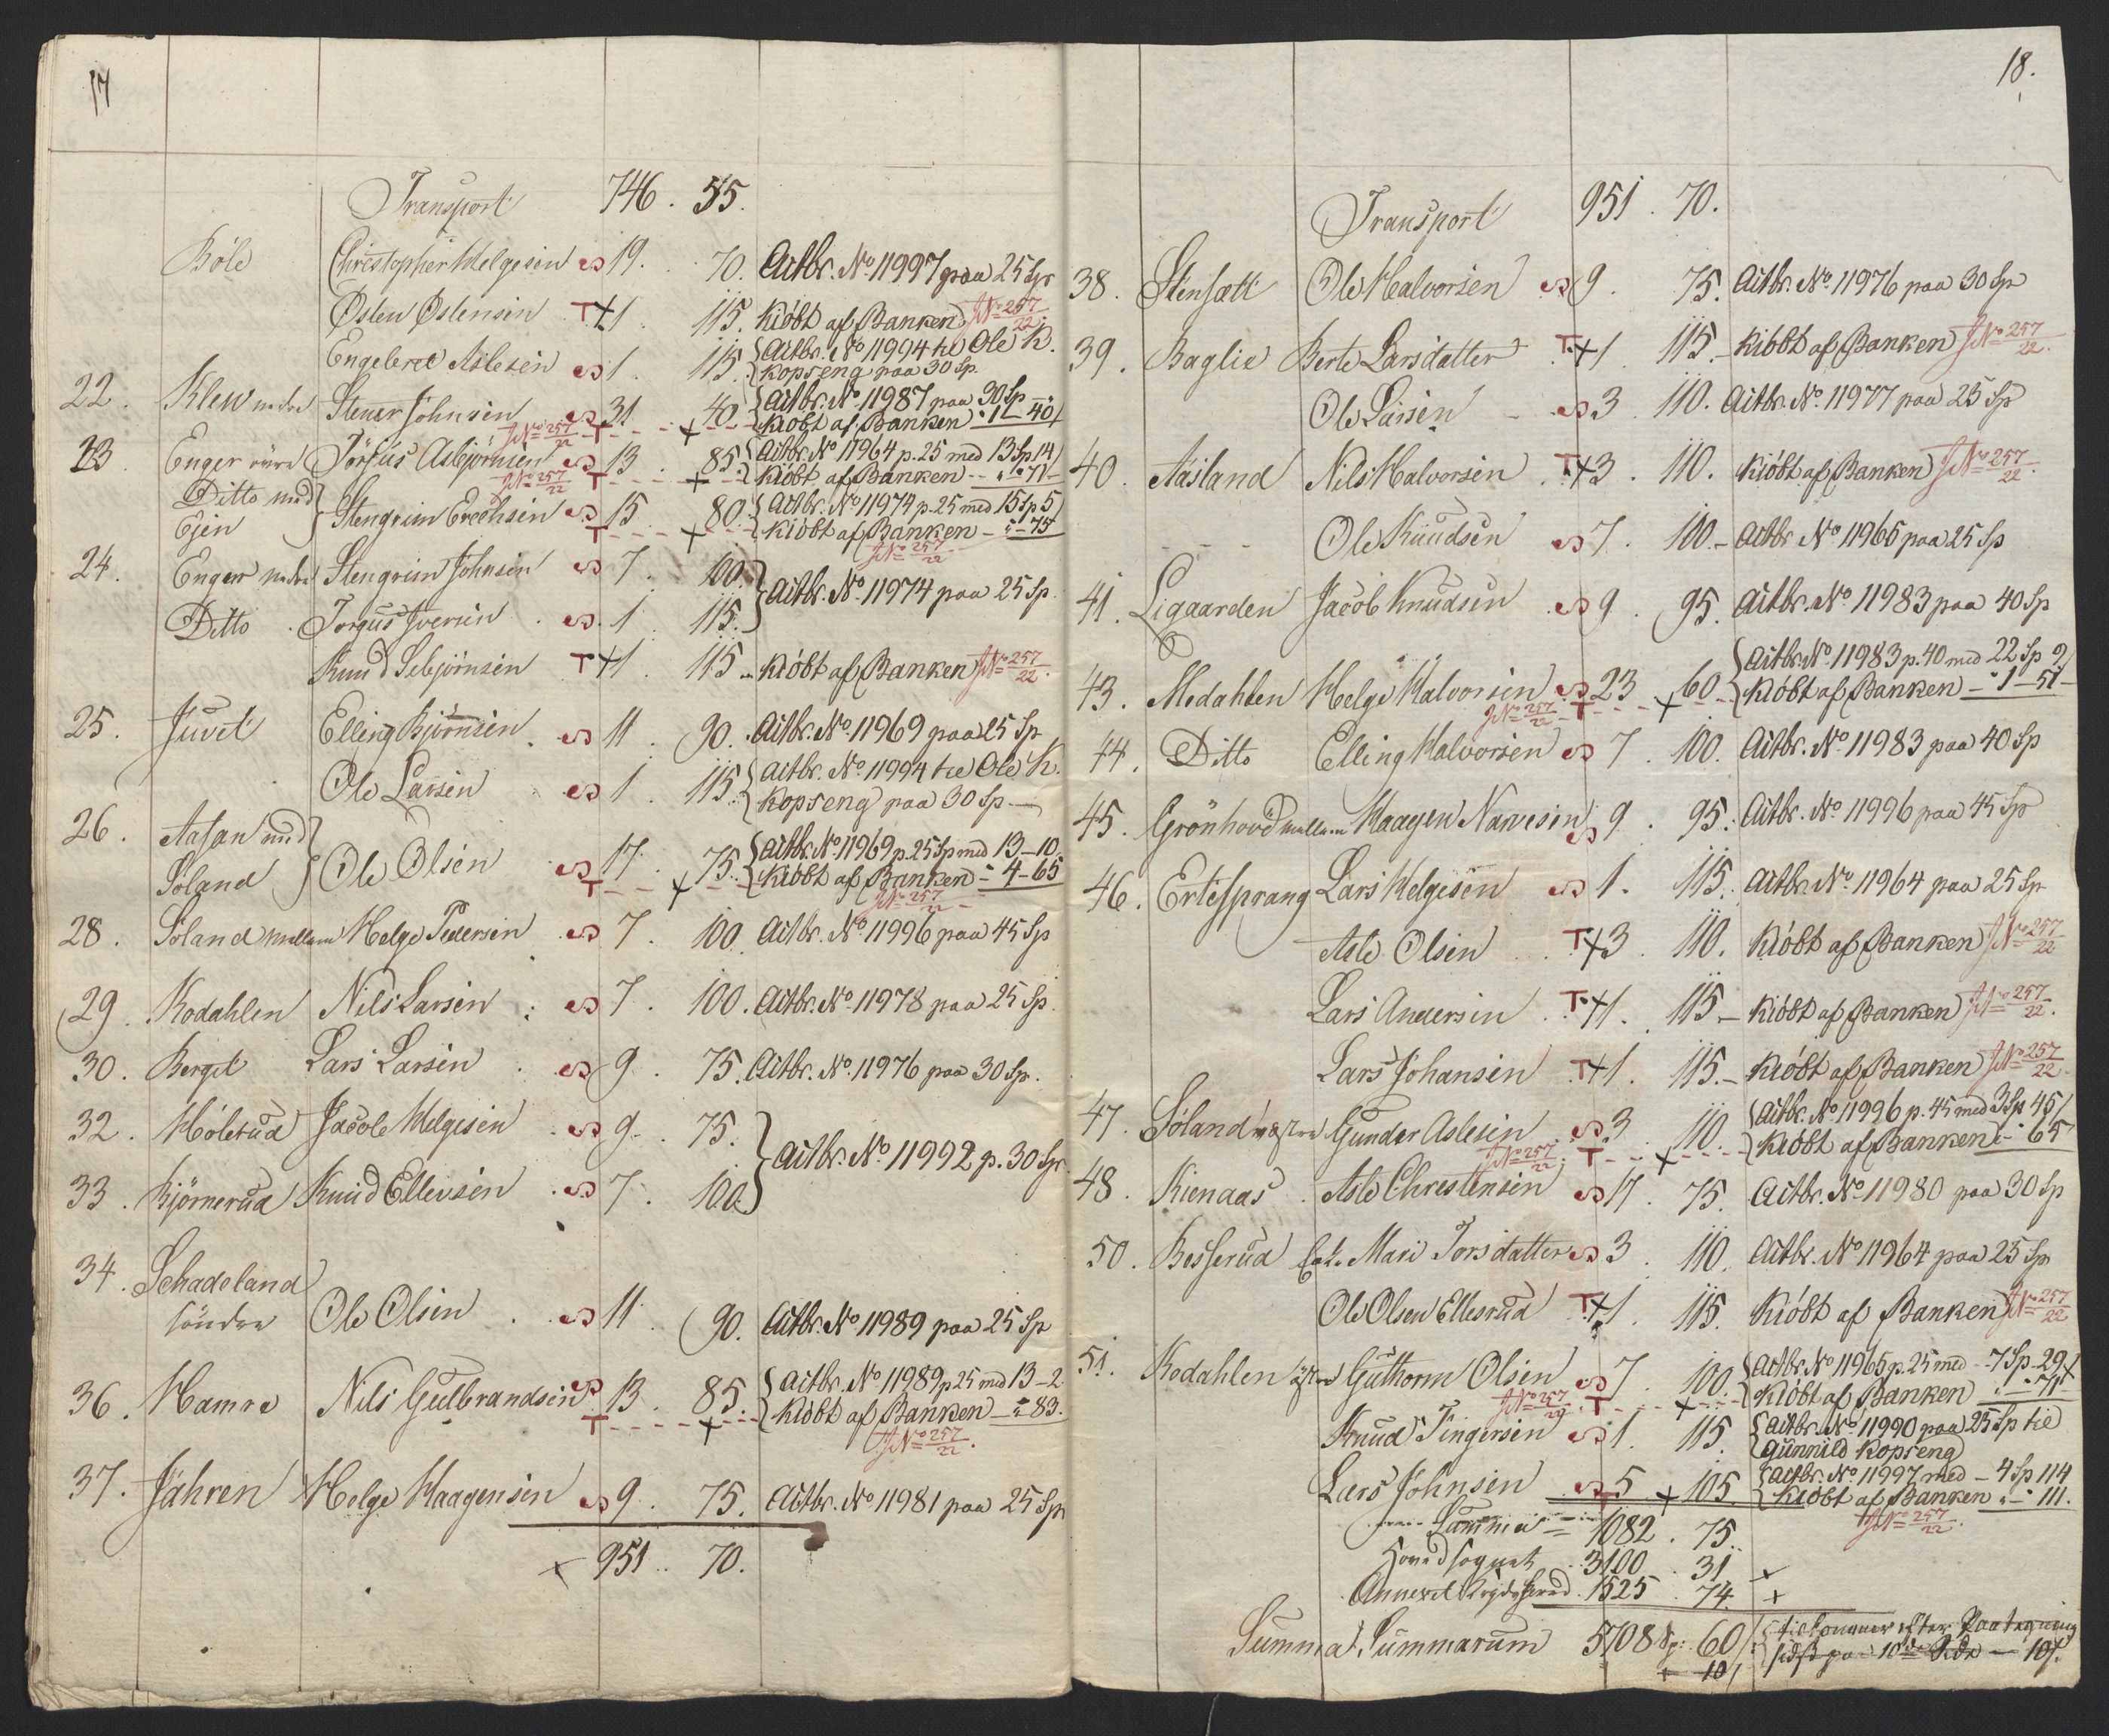 17
Transport 746 . 55.
Böle Christopher Helgesen 19. 70. Actbr. No. 11997 paa 25 Sp
Östen Östensen T+1 115. Kiöbt af Banken JNo 257/22
Engebret Aslesen 1. 115. Actbr. No 11994 til Ole K.
Kopseng paa 30 Sp.
22. Klew nedre Stener Johnsen 31 40. Actbr. No. 11987 paa 30 Sp
JNo 257/22 T + Kiöbt af Banken " 1 - 40
23. Enger övre Törgus Asbjörnsen 13 . 85. Actbr. No 11964 p. 25 med 13 Sp 14
JNo 257/22 T + Kiöbt af Banken - " - 71
Ditto med Stengrim Erechsen 15 80. Actbr. No. 11974 p. 25 med 15 Sp 5
Ejen T + Kiöbt af Banken - " - 75
JNo 257/22
24. Enger nedre Stengrim Johnsen 7. 100. Actbr. No. 11974 paa 25 Sp.
Ditto . Torgus Iversen . 1 115.
Knud Sebjörnsen T+1. 115 - Kiöbt af Banken JNo 257/22.
25. Juvet Elling Bjørnsen . 11 . 90. Actbr. No. 11969 paa 25 Sp
Ole Larsen 1 . 115. Actbr. No. 11994 til Ole K.
Kopseng paa 30 Sp.
26. Aasan med Ole Olsen 17. 75. Actbr. No. 11969 p. 25 Sp med 13 - 10.
Söland T + Kiöbt af Banken - " 4 - 65
JNo 257/22
28. Söland mellem Helge Pedersen 7. 100 Actbr. No. 11996 paa 45 Sp
29. Kodahlen Nils Larsen . 7. 100. Actbr. No. 11978 paa 25 Sp.
30. Berget Lars Larsen . 9. 75. Actbr. No. 11976 paa 30 Sp.
32. Hölerud Jacob Helgesen 9. 75. Actbr. No. 11992 p. 30 Sp.
33. Bjömerud Knud Ellevsen 7. 100
34. Schadeland
söndre Ole Olsen . 11 90. Actbr. No 11989 paa 25 Sp
36. Hamre Nils Gulbrandsen 13 . 85. Actbr. No. 11989 p 25 med 13 - 2
T + Kiöbt af Banken - " 83.
JNo 257/22.
37. Jähren Helge Haagensen 9. 75. Actbr. No. 11981 paa 25 Sp
+ 951 . 70.
18.
Transport 951 . 70.
38. Stensætt Ole Halvorsen 9. 75. Actbr. No. 11976 paa 30 Sp
39. Baglie Berte Larsdatter T+1 115. Kiöbt af Banken JNo 257/22.
Ole Larsen - 3 . 110. Actbr. No. 11977 paa 25 Sp
40. Aasland Nils Halvorsen T+3 . 110. Kiöbt af Banken JNo 257/22.
Ole Knudsen 7. 100. - Actbr No 11965 paa 25 Sp
41. Ligaarden Jacob Knudsen 9 . 95. Actbr. No. 11983 paa 40 Sp
43. Medahlen Helge Halvorsen 23 60. Actbr. No. 11983 p. 40 med 22 Sp 9
JNo 257/22 T + Kiöbt af Banken - " 1 - 51
44. Ditto Elling Halvorsen 7 . 100. Actbr. No. 11983 paa 40 Sp
45. Grönhovd mellem Haagen Narvesen 9 . 95. Actbr. No. 11996 paa 45 Sp
46. Ertesprang Lars Helgesen 1. 115. Actbr. No. 11964 paa 25 Sp
Asle Olsen . T+3 . 110. Kiöbt af Banken JNo 257/22
Lars Andersen . T+1. 115. - Kiöbt af Banken JNo 257/22.
Lars Johansen . T+1. 115. - Kiöbt af Banken JNo 257/22.
47. Söland vestre Gunder Aslesen 3 110. Actbr. No 11996 p. 45 med 3 Sp 45
JNo 257/22 T + Kiöbt af Banken - " 65
48. Kienaas . Asle Chrestensen 17. 75. Actbr. No 11980 paa 30 Sp
50. Besserud Enk. Mari Torsdatter 3 . 110. Actbr. No 11964 paa 25 Sp
Ole Olsen Ellesrud T+1 . 115. Kiöbt af Banken JNo 257/22
51. Kodahlen östre Guthorm Olsen 7 . 100. Actbr. No 11965 p. 25 med - 7 Sp - 29
JNo 257/22 T + Kiöbt af Banken " - 71
Knud Tingersen 1. 115. Actbr. No. 11990 paa 25 Sp til
Gunnild Kopseng
Lars Johnsen 5 + 105. Actbr. No. 11997 med - 4 Sp 114
Kiöbt af Banken " - 111.
JNo 257/22.
Summa 1082 . 75.
Hovedsognet 3100 . 31 +
Annexet 1525 . 74. +
Summa Summarum 5708 Sp: 60 tilkommer efter Paategning
+ 10 sidst paa 10de Side - 10